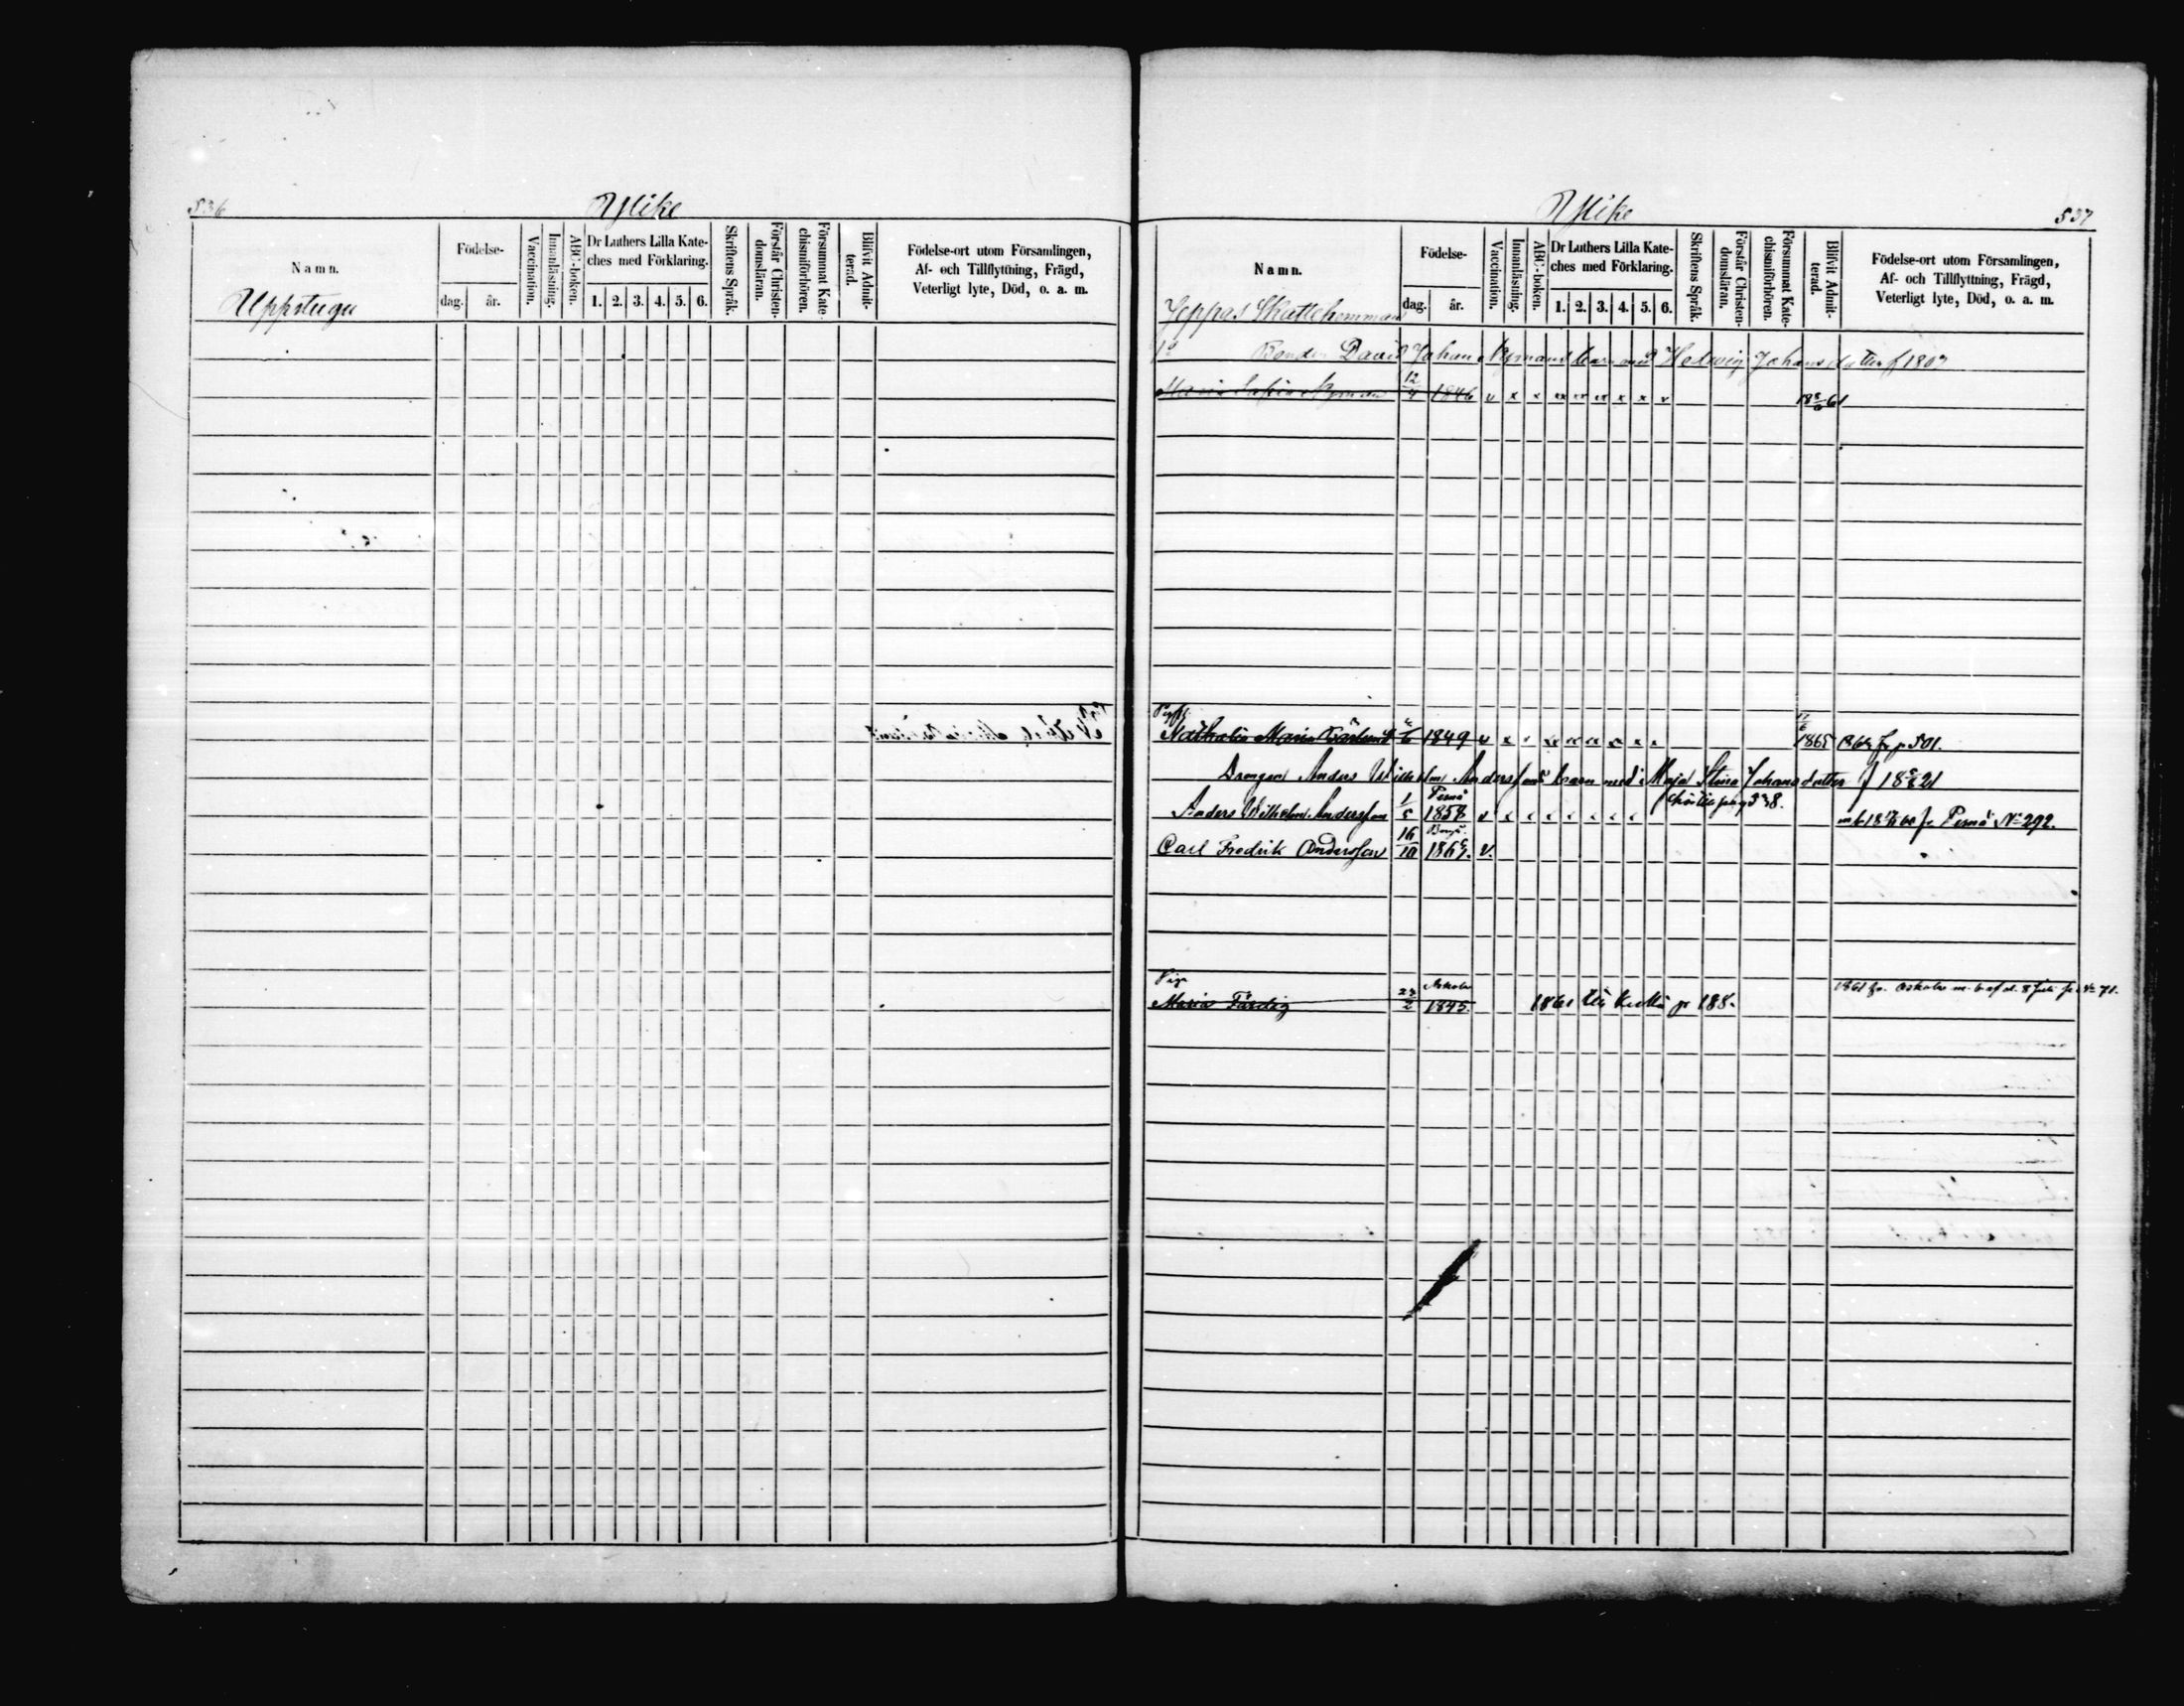 536
Ylike
Namn.
Uppstuga
Födelse-
dag. år.
Vaccination.
Innanläsning.
ABC-boken.
Dr Luthers Lilla Kate-
ches med Förklaring.
1. 2. 3. 4. 5. 6.
Skriftens Språk.
Förstår Christen-
domsläran.
Försummat Kate-
chismiförhören.
Blifvit Admit-
terad.
Födelse-ort utom Församlingen,
Af- och Tillflyttning, Frägd,
Veterligt lyte, Död, o. a. m.
Ylike
537
Namn.
Jeppas Skattehemman
Födelse-
dag. år.
Vaccination.
Innanläsning.
ABC-boken.
Dr Luthers Lilla Kate-
ches med Förklaring.
1. 2. 3. 4. 5. 6.
Skriftens Språk.
Förstår Christen-
domsläran.
Försummat Kate-
chismiförhören.
Blifvit Admit-
terad.
Födelse-ort utom Församlingen,
Af- och Tillflyttning, Frägd,
Veterligt lyte, Död, o. a. m.
Bonden David Johan Nymans barn med Hedwig Johansdotter f 1807
Maria Sofia Nyman 12/4 1846 v x x xx xx xx x x x
Nathalia Maria 1849 v x x 1865 fr p 501.
Drengen Anders Wilhelm Anderssons barn med: Maja Stina Johansdotter f 21
Pernå
Anders Wilhelm Andersson 1/5 1858 v x x x x x x x fr Pernå N 292.
Carl Fredrik Andersson 16/10 v.
Pig.
Askola
Maria Färdig 23/2 1845 1861 till p 188.
1861 fr. Askola m. b. af d. 8 Juli N 71.